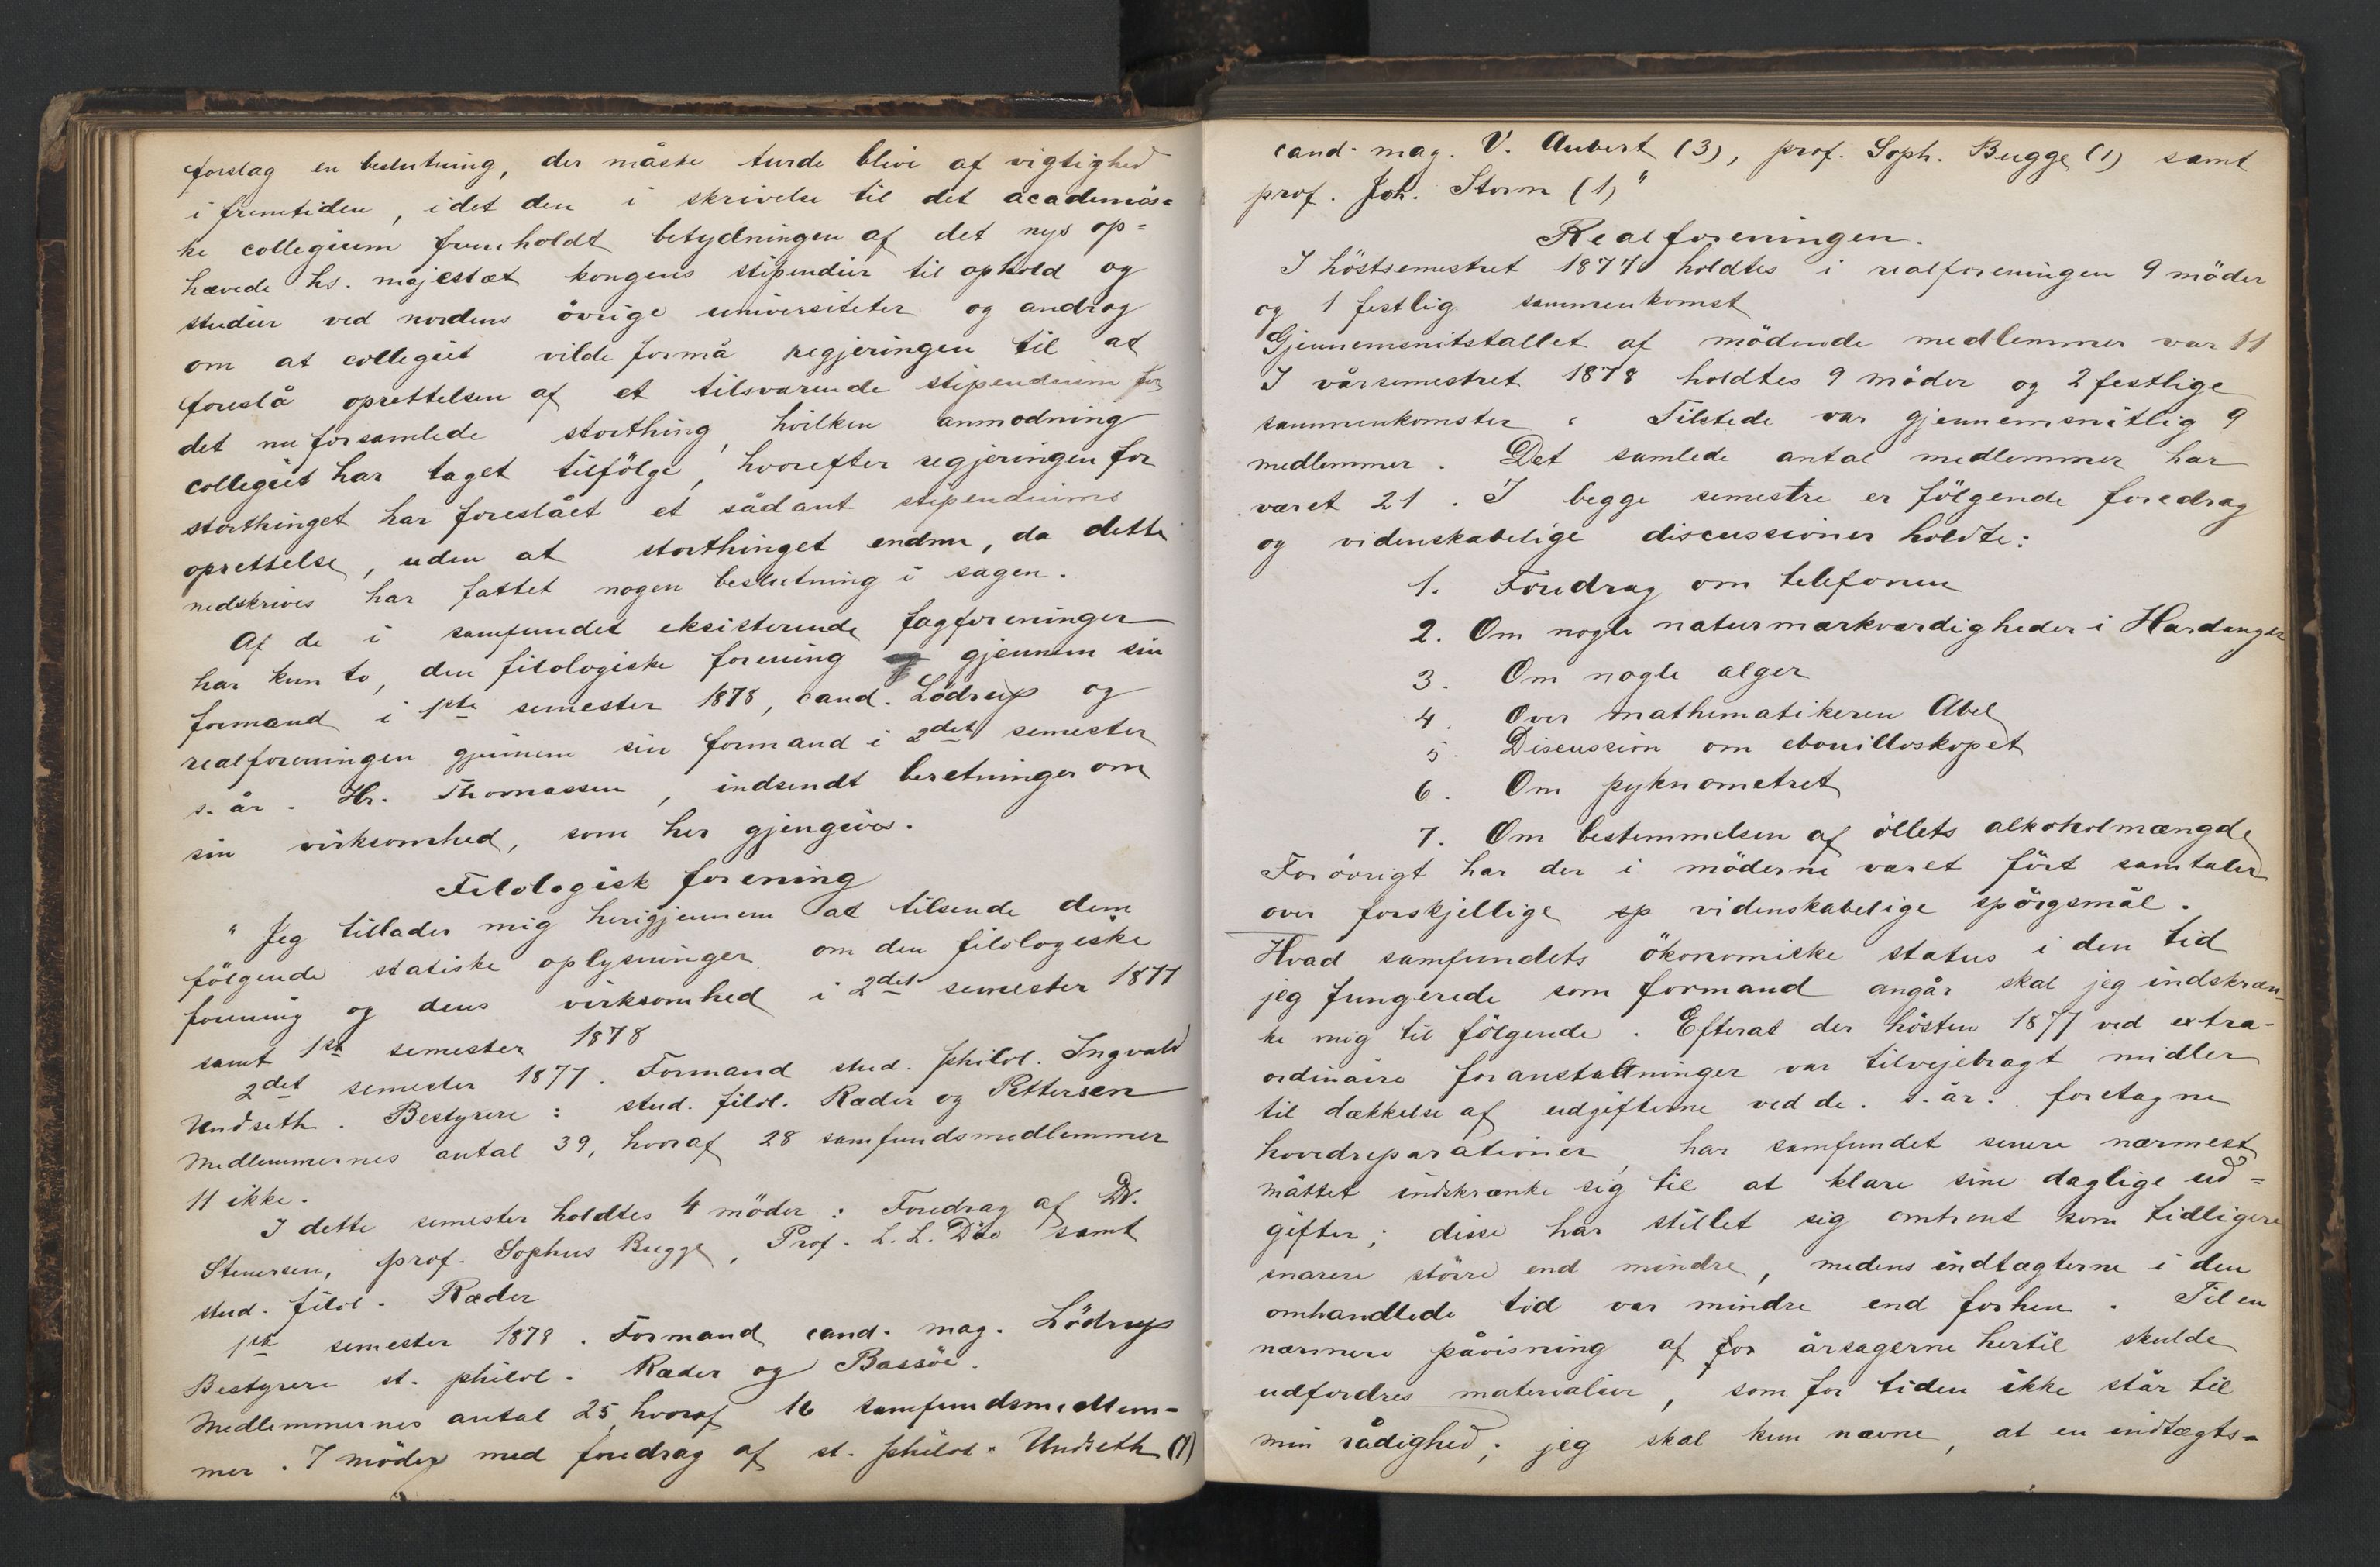 forslag en beslutning, der måske turde blive af vigtighed
i fremtiden, idet den i skrivelse til det academis=
ke collegium fremholdt betydningen af det nys op=
hævede hs. majestæt kongens stipendier til ophold og
studier ved nordens övrige universiteter og androg
om at collegiet vilde formå regjeringen til at
foreslå oprettelsen af et tilsvarende stipendium for
det nu forsamlede storthing, hvilken anmodning
collegiet har taget tilfölge, hvorefter regjeringen for
storthinget har foreslået et sådant stipendiums
oprettelse, uden at storthinget endnu, da dette
nedskrives har fattet nogen beslutning i sagen.
Af de i samfundet eksisterende fagforeninger
har kun to, den filologiske forening gjennem sin
formand i 1ste semester 1878, cand. Lödrup og
realforeningen gjennem sin formand i 2det semester
s. år. Hr. Thomassen, indsendt beretninger om
sin virksomhed, som her gjengives.
Filologisk forening
" Jeg tillader mig herigjennem at tilsende dem
fölgende statiske oplysninger om den filologiske
forening og dens virksomhed i 2det semester 1877
samt 1ste semester 1878
2det semester 1877. Formand stud. philol. Ingvald
Undseth. Bestyrere: stud. filol. Ræder og Pettersen
Medlemmernes antal 39, hvoraf 28 samfundsmedlemmer
11 ikke.
I dette semester holdtes 4 möder: Foredrag af Dr.
Stenersen, prof. Sophus Bugge, Prof. L. L. Daa samt
stud. filol. Ræder
1ste semester 1878. Formand cand. mag. Lödrup
Bestyrere st. philol. Ræder og Bassöe.
Medlemmernes antal 25, hvoraf 16 samfundsmedlem-
mer. 7 möder med foredrag af st. philol. Undseth (1)
cand. mag. V. Aubert (3), prof. Soph. Bugge (1) samt
prof. Joh. Storm (1)"
Realforeningen.
I höstsemestret 1877 holdtes i realforeningen 9 möder
og 1 festlig sammenkomst
Gjennemsnitstallet af mödende medlemmer var 11
I vårsemestret 1878 holdtes 9 möder og 2 festlige
sammenkomster. Tilstede var gjennemsnitlig 9
medlemmer. Det samlede antal medlemmer har
været 21. I begge semestre er fölgende foredrag
og videnskabelige discussioner holdte:
1. Foredrag om telefonen
2. Om nogle naturmærkværdigheder i Hardanger
3. Om nogle alger
4. Over mathematikeren Abel
5. Discussion om ebouilloskopet
6. Om pyknometret
7. Om bestemmelsen af öllets alkoholmængde
Forövrigt har der i möderne været fört samtaler
over forskjellige sp videnskabelige spörgsmål.
Hvad samfundets ökonomiske status i den tid
jeg fungerede som formand angår skal jeg indskræn-
ke mig til fölgende. Efterat der hösten 1877 ved extra-
ordinaire foranstaltninger var tilvejebragt midler
til dækkelse af udgifterne ved de. s. år. foretagne
hovedreparationer, har samfundet senere nærmest
måttet indskrænke sig til at klare sine daglige ud=
gifter; disse har stillet sig omtrent som tidligere
snarere större end mindre, medens indtægterne i den
omhandlede tid var mindre end forhen. Til en
nærmere påvisning af for årsagerne hertil skulde
udfordres materialier, som for tiden ikke står til
min rådighed; jeg skal kun nævne, at en indtægts=